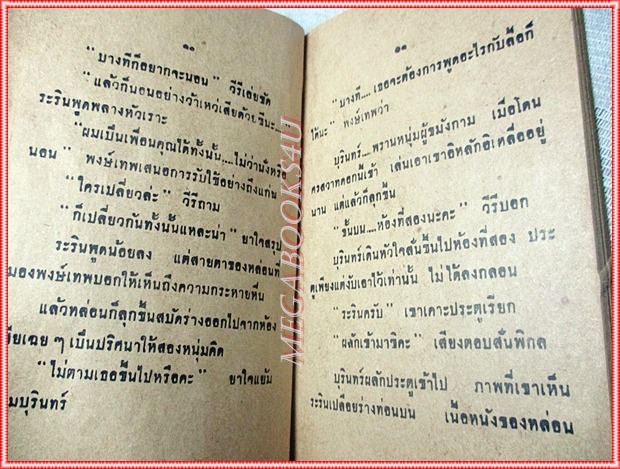 ๑๐
“บางทีก็อยากจะนอน” วีรีเอ่ยชัด
“แล้วก็นอนอย่างว้าเหว่เสียด้วยซีนะ....”
ระรินพูดพลางหัวเราะ
“ผมเป็นเพื่อนคุณได้ทั้งนั้น....ไม่ว่านั่งหรือ
นอน” พงษ์เทพเสนอการรับใช้อย่างถึงแก่น
“ใครเปลี่ยวล่ะ” วีรีถาม
“ก็เปลี่ยวกันทั้งนั้นแหละน่า” ยาใจสรุป
ระรินพูดน้อยลง แต่สายตาของหล่อนที่
มองพงษ์เทพบอกให้เห็นถึงความกระหายหื่น
แล้วหล่อนก็ลุกขึ้นสบัดร่างออกไปจากห้อง
เฉย ๆ เป็นปริศนาให้สองหนุ่มคิด
“ไม่ตามเธอขึ้นไปหรือคะ” ยาใจแย้ม
บุรินทร์
๑๑
“บางที....เธอจะต้องการพูดอะไรกับลื้อก็
ได้นะ” พงษ์เทพว่า
บุรินทร์...พรานหนุ่มผู้ขมังกาม เมื่อโดน
ศรสวาทดอกนี้เข้า เล่นเอาเขาอิหลักอิเหลื่ออยู่
นาน แต่แล้วก็ลุกขึ้น
“ชั้นบน....ห้องที่สองนะคะ” วีรีบอก
บุรินทร์เดินหัวใจสั่นขึ้นไปห้องที่สอง ประ
ตูเพียงแต่งับเอาไว้เท่านั้น ไม่ได้ลงกลอน
“ระรินครับ” เขาเคาะประตูเรียก
“ผลักเข้ามาซิคะ” เสียงตอบสั่นพิกล
บุรินทร์ผลักประตูเข้าไป ภาพที่เขาเห็น
ระรินเปลือยร่างท่อนบน เนื้อหนังของหล่อน
MEGABOOKS4U